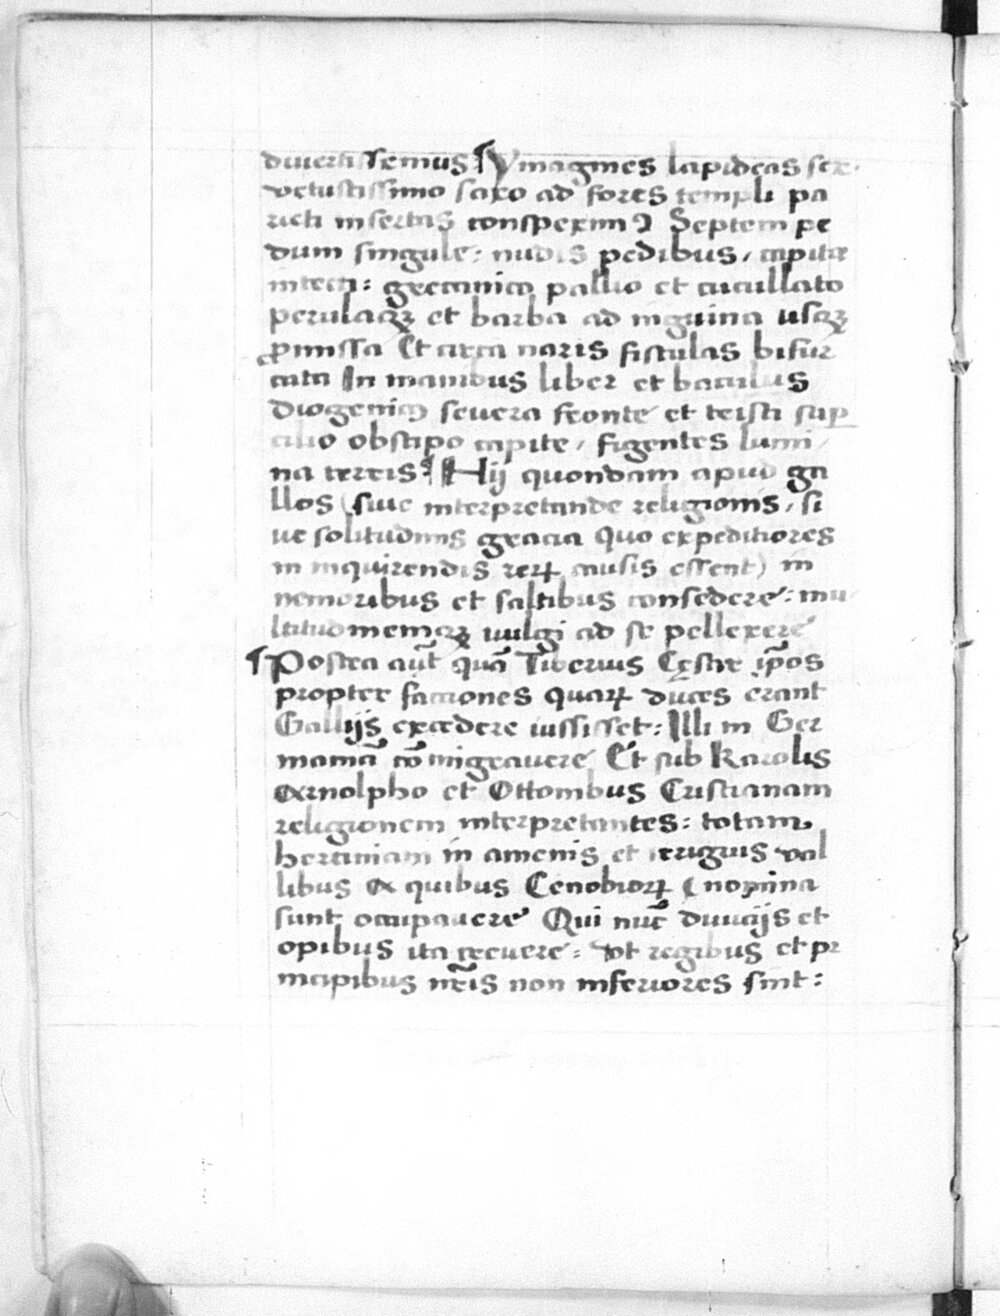 diuertissemus ¶ Ymagines lapideas sex
vetustissimo saxo ad fores templi pa
rieti insertas conspexim9 Septem pe
dum singule: nudis pedibus, capite
intecti: grecanico pallio et cucullato
perulaqꝫ et barba ad inguina usqꝫ
ꝓmissa Et circa naris fistulas bifur
cata In manibus liber et baculus
Diogenicus seuera fronte et tristi sup̱
cilio obstipo capite, figentes lumi
na terris ¶ Hij quondam apud ga
llos (siue interpretande religionis, si
ue solitudinis gracia Quo expeditiores
in inquirendis reꝝ causis essent) in
nemoribus et saltibus consedere: mu
ltitudinemqꝫ uulgi ad se pellexere
¶ Postea aūt quā Tiberius Cęsar ip̄os
propter factiones quaꝝ duces erant
Gallijs excedere iussisset: Illi in Ger
maniā cō migrauere Et sub Karolis
Arnolpho et Ottonibus Cristianam
religionem interpretantes: totam
herciniam in amenis et irriguis val
libus ex quibus Cenobioꝝ (nomina
sunt occupauere Qui nūc diuicijs et
opibus ita creuere: Vt regibus et pri
ncipibus nr̄is non inferiores sint: